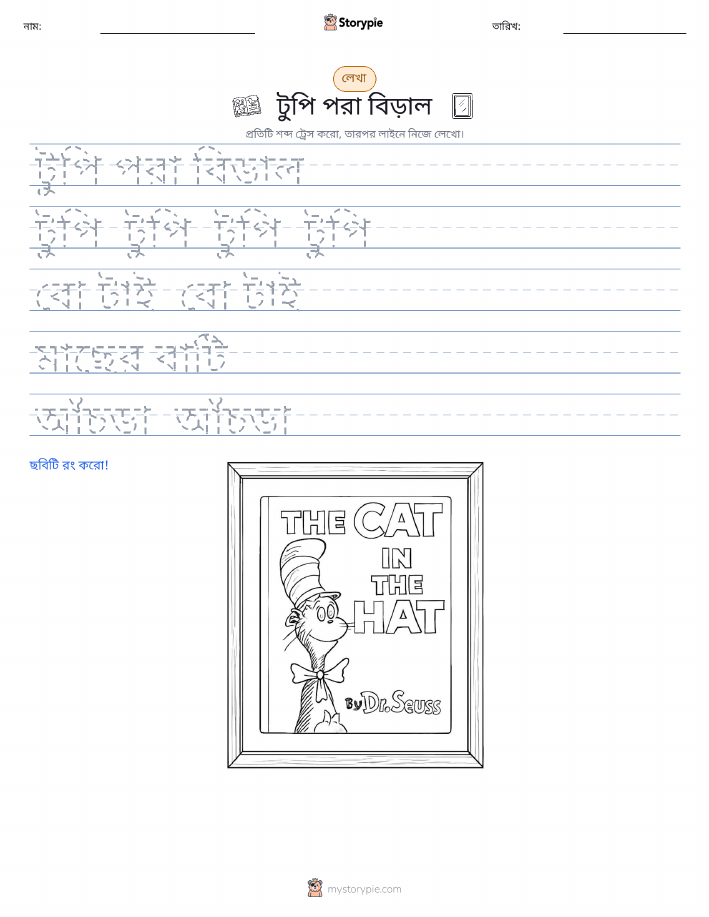 নাম:
Storypie
তারিখ:
লেখা
টুপি পরা বিড়াল
প্রতিটি শব্দ ট্রেস করো, তারপর লাইনে নিজে লেখো।
টুপি পরা বিড়াল
টুপি টুপি টুপি টুপি
বো টাই বো টাই
মাছের বাটি
আঁচড়া আঁচড়া
ছবিটি রং করো!
THE CAT
IN
THE
HAT
By Dr. Seuss
mystorypie.com